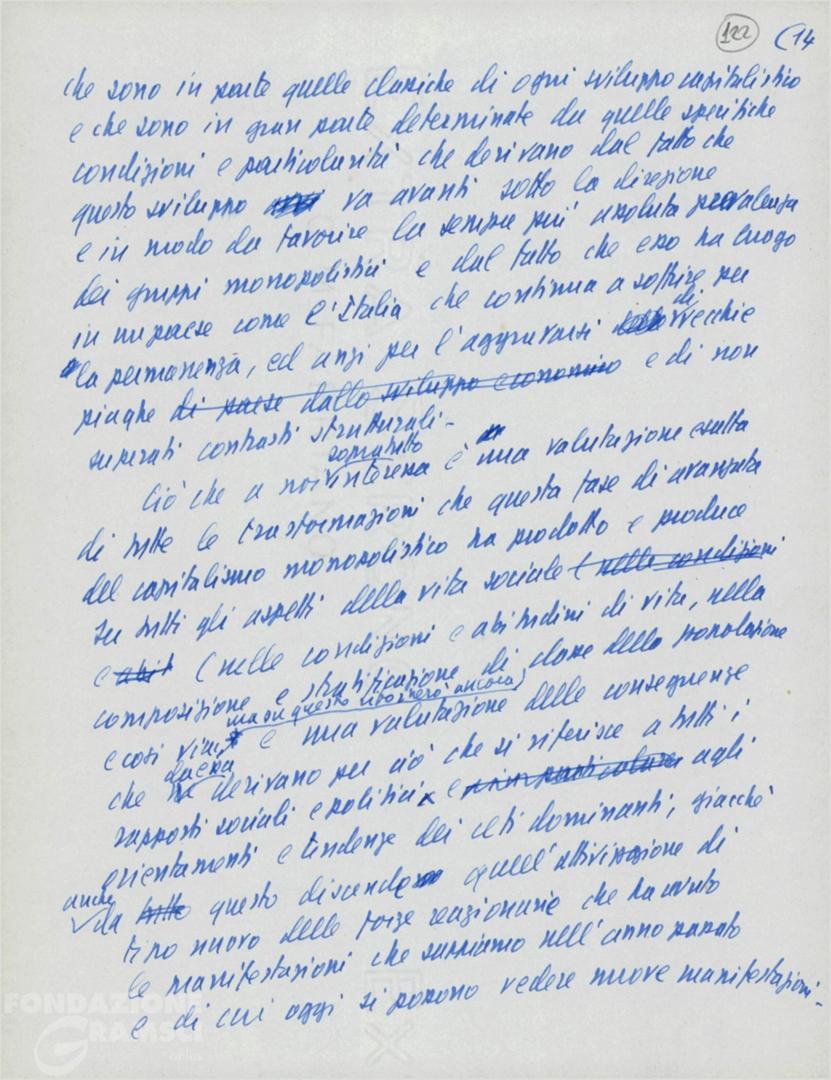 122 (14
che sono in parte quelle classiche di ogni sviluppo capitalistico
e che sono in gran parte determinate da quelle specifiche
condizioni e particolarità che derivano dal fatto che
questo sviluppo va avanti sotto la direzione
e in modo da favorire la sempre più assoluta prevalenza
dei gruppi monopolistici e dal fatto che esso ha luogo
in un paese come l'Italia che continua a soffrire per
la permanenza, ed anzi per l'aggravarsi di vecchie
piaghe di paese dallo sviluppo economico e di non
superati contrasti strutturali.-
Ciò che a noi soprattutto interessa è una valutazione esatta
di tutte le trasformazioni che questa fase di avanzata
del capitalismo monopolistico ha prodotto e produce
su tutti gli aspetti della vita sociale (nelle condizioni
e abit (nelle condizioni e abitudini di vita, nella
composizione e stratificazione di classe della popolazione
e così via, ma su questo ritornerò ancora) e una valutazione delle conseguenze
che da essa derivano per ciò che si riferisce a tutti i
rapporti sociali e politici e in particolare agli
orientamenti e tendenze dei ceti dominanti, giacchè
anche da tutto questo discende quell'attivizzazione di
tipo nuovo delle forze reazionarie che ha avuto
le manifestazioni che sappiamo nell'anno passato
e di cui oggi si possono vedere nuove manifestazioni.-
FONDAZIONE
GRAMSCI